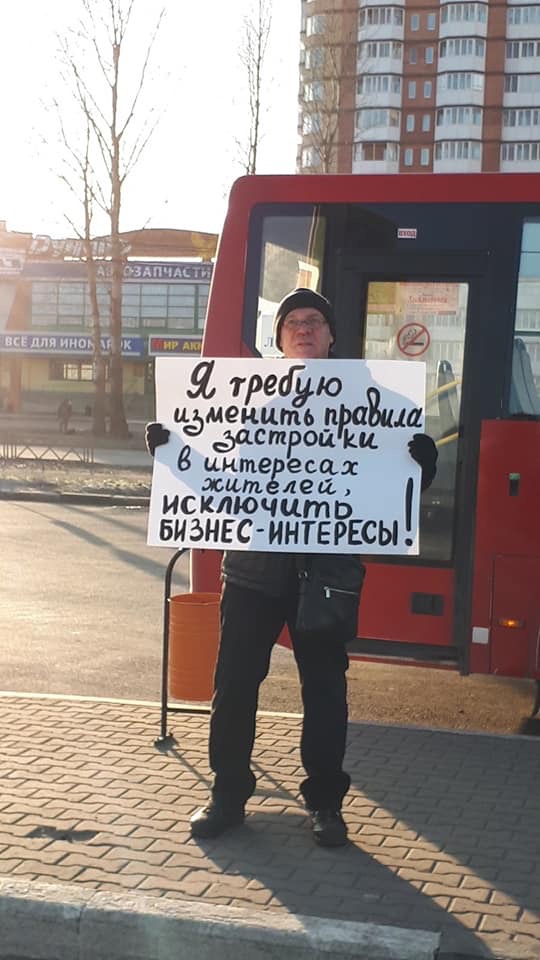 вход
АВТОЗАПЧАСТИ
ВСЁ ДЛЯ ИНОМАРОК
МИР АКК
Я требую
изменить правила
застройки
в интересах
жителей,
исключить
БИЗНЕС-ИНТЕРЕСЫ!